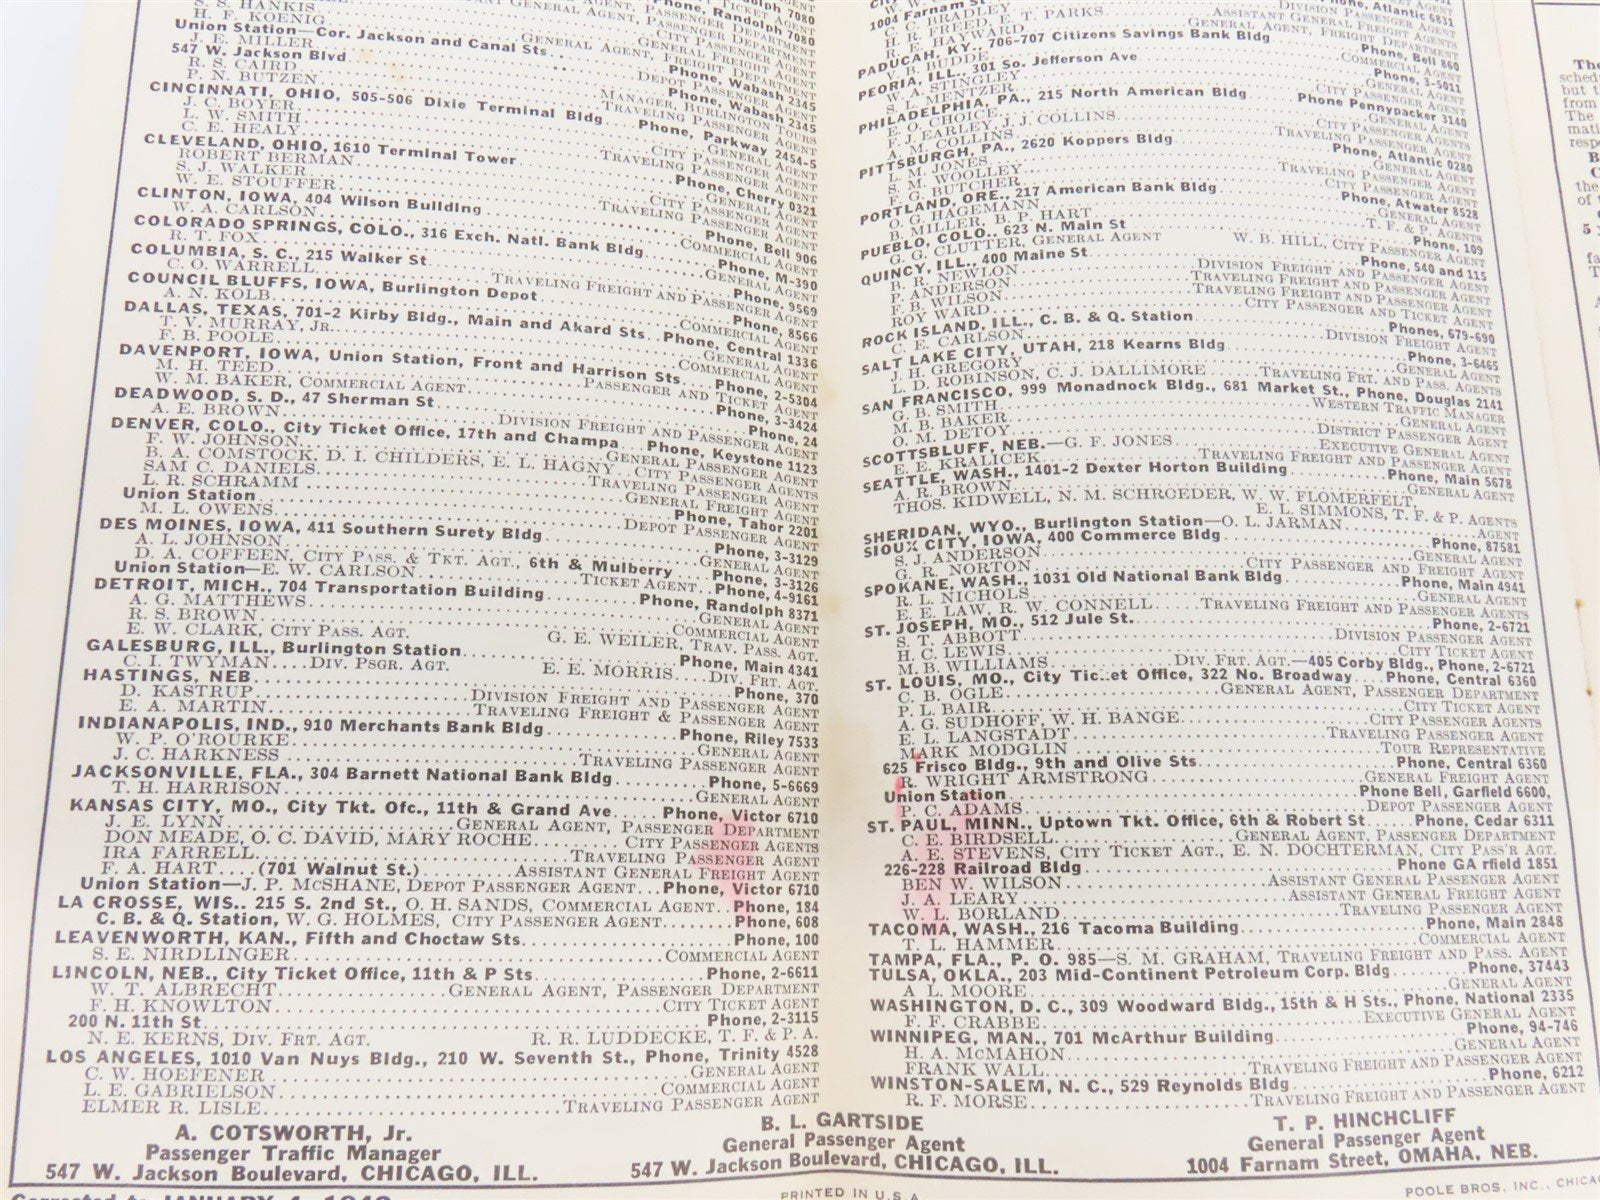 S. S. HANKIS
H. F. KOENIG
Union Station—Cor. Jackson and Canal Sts. Phone, Wabash 2345
J. E. MILLER DEPOT PASSENGER AGENT
547 W. Jackson Blvd Phone, Wabash 2345
R. S. CAIRD MANAGER, BURLINGTON TOURS
P. N. BUTZEN TRAVELING PASSENGER AGENT
CINCINNATI, OHIO, 505-506 Dixie Terminal Bldg Phone, Parkway 2454-5
J. C. BOYER GENERAL AGENT
L. W. SMITH CITY PASSENGER AGENT
C. E. HEALY TRAVELING PASSENGER AGENT
CLEVELAND, OHIO, 1610 Terminal Tower Phone, Cherry 0321
ROBERT BERMAN GENERAL AGENT
S. J. WALKER CITY PASSENGER AGENT
W. E. STOUFFER TRAVELING PASSENGER AGENT
CLINTON, IOWA, 404 Wilson Building Phone, Bell 906
W. A. CARLSON COMMERCIAL AGENT
COLORADO SPRINGS, COLO., 316 Exch. Natl. Bank Bldg Phone, M-390
R. T. FOX GENERAL AGENT
COLUMBIA, S. C., 215 Walker St Phone, 9569
C. O. WARRELL TRAVELING FREIGHT AND PASSENGER AGENT
COUNCIL BLUFFS, IOWA, Burlington Depot Phone, 8566
A. N. KOLB COMMERCIAL AGENT
DALLAS, TEXAS, 701-2 Kirby Bldg., Main and Akard Sts. Phone, Central 1336
T. V. MURRAY, JR. GENERAL AGENT
F. B. POOLE COMMERCIAL AGENT
DAVENPORT, IOWA, Union Station, Front and Harrison Sts. Phone, 2-5304
M. H. TEED PASSENGER AND TICKET AGENT
W. M. BAKER, COMMERCIAL AGENT Phone, 3-3424
DEADWOOD, S. D., 47 Sherman St Phone, 24
A. E. BROWN DIVISION FREIGHT AND PASSENGER AGENT
DENVER, COLO., City Ticket Office, 17th and Champa Phone, Keystone 1123
F. W. JOHNSON GENERAL PASSENGER AGENT
B. A. COMSTOCK, D. I. CHILDERS, E. L. HAGNY CITY PASSENGER AGENTS
SAM C. DANIELS TRAVELING PASSENGER AGENT
L. R. SCHRAMM GENERAL FREIGHT AGENT
Union Station Phone, Tabor 2201
M. L. OWENS DEPOT PASSENGER AGENT
DES MOINES, IOWA, 411 Southern Surety Bldg Phone, 3-3129
A. L. JOHNSON GENERAL AGENT
D. A. COFFEEN, CITY PASS. & TKT. AGT., 6th & Mulberry Phone, 3-3126
Union Station—E. W. CARLSON TICKET AGENT Phone, 4-9161
DETROIT, MICH., 704 Transportation Building Phone, Randolph 8371
A. G. MATTHEWS GENERAL AGENT
R. S. BROWN COMMERCIAL AGENT
E. W. CLARK, CITY PASS. AGT. G. E. WEILER, TRAV. PASS. AGT.
GALESBURG, ILL., Burlington Station Phone, Main 4341
C. I. TWYMAN....DIV. PSGR. AGT. E. E. MORRIS....DIV. FRT. AGT.
HASTINGS, NEB Phone, 370
D. KASTRUP DIVISION FREIGHT AND PASSENGER AGENT
E. A. MARTIN TRAVELING FREIGHT & PASSENGER AGENT
INDIANAPOLIS, IND., 910 Merchants Bank Bldg Phone, Riley 7533
W. P. O'ROURKE GENERAL AGENT
J. C. HARKNESS TRAVELING PASSENGER AGENT
JACKSONVILLE, FLA., 304 Barnett National Bank Bldg Phone, 5-6669
T. H. HARRISON GENERAL AGENT
KANSAS CITY, MO., City Tkt. Ofc., 11th & Grand Ave Phone, Victor 6710
J. E. LYNN GENERAL AGENT, PASSENGER DEPARTMENT
DON MEADE, O. C. DAVID, MARY ROCHE CITY PASSENGER AGENTS
IRA FARRELL TRAVELING PASSENGER AGENT
F. A. HART....(701 Walnut St.) ASSISTANT GENERAL FREIGHT AGENT
Union Station—J. P. McSHANE, DEPOT PASSENGER AGENT...Phone, Victor 6710
LA CROSSE, WIS.. 215 S. 2nd St., O. H. SANDS, COMMERCIAL AGENT..Phone, 184
C. B. & Q. Station, W. G. HOLMES, CITY PASSENGER AGENT Phone, 608
LEAVENWORTH, KAN., Fifth and Choctaw Sts Phone, 100
S. E. NIRDLINGER COMMERCIAL AGENT
LINCOLN, NEB., City Ticket Office, 11th & P Sts Phone, 2-6611
W. T. ALBRECHT GENERAL AGENT, PASSENGER DEPARTMENT
F. H. KNOWLTON CITY TICKET AGENT
200 N. 11th St Phone, 2-3115
N. E. KERNS, DIV. FRT. AGT. R. R. LUDDECKE, T. F. & P. A.
LOS ANGELES, 1010 Van Nuys Bldg., 210 W. Seventh St., Phone, Trinity 4528
C. W. HOEFENER GENERAL AGENT
L. E. GABRIELSON COMMERCIAL AGENT
ELMER R. LISLE TRAVELING PASSENGER AGENT
1004 Farnam St. Phone, Atlantic 6831
C. G. BRADLEY DIVISION PASSENGER AGENT
H. R. FREED, E. T. PARKS ASSISTANT GENERAL FREIGHT AGENTS
R. E. HAYWARD GENERAL AGENT, FREIGHT DEPARTMENT
PADUCAH, KY., 706-707 Citizens Savings Bank Bldg Phone, Bell 860
V. B. BUDDE COMMERCIAL AGENT
PEORIA, ILL., 301 So. Jefferson Ave Phone, 3-5011
W. A. STINGLEY GENERAL AGENT
S. L. MENTZER CITY PASSENGER AGENT
PHILADELPHIA, PA., 215 North American Bldg Phone Pennypacker 3140
E. O. CHOICE GENERAL AGENT
F. J. EARLEY, J. J. COLLINS CITY PASSENGER AGENTS
A. M. COLLINS TRAVELING PASSENGER AGENT
PITTSBURGH, PA., 2620 Koppers Bldg Phone, Atlantic 0280
L. M. JONES GENERAL AGENT
S. M. WOOLLEY TRAVELING PASSENGER AGENT
F. G. BUTCHER CITY PASSENGER AGENT
PORTLAND, ORE., 217 American Bank Bldg Phone, Atwater 8528
O. G. HAGEMANN GENERAL AGENT
B. MILLER, B. P. HART T. F. & P. AGENTS
PUEBLO, COLO., 623 N. Main St Phone, 109
G. G. CLUTTER, GENERAL AGENT W. B. HILL, CITY PASSENGER AGENT
QUINCY, ILL., 400 Maine St Phone, 540 and 115
B. R. NEWLON DIVISION FREIGHT AND PASSENGER AGENT
P. ANDERSON TRAVELING FREIGHT AND PASSENGER AGENT
F. B. WILSON TRAVELING FREIGHT AND PASSENGER AGENT
ROY WARD CITY PASSENGER AND TICKET AGENT
ROCK ISLAND, ILL., C. B. & Q. Station Phones, 679-690
C. E. CARLSON DIVISION FREIGHT AGENT
SALT LAKE CITY, UTAH, 218 Kearns Bldg Phone, 3-6465
J. H. GREGORY GENERAL AGENT
L. D. ROBINSON, C. J. DALLIMORE TRAVELING FRT. AND PASS. AGENTS
SAN FRANCISCO, 999 Monadnock Bldg., 681 Market St., Phone, Douglas 2141
G. B. SMITH WESTERN TRAFFIC MANAGER
M. B. BAKER GENERAL AGENT
O. M. DETOY DISTRICT PASSENGER AGENT
SCOTTSBLUFF, NEB.—G. F. JONES EXECUTIVE GENERAL AGENT
E. E. KRALICEK TRAVELING FREIGHT AND PASSENGER AGENT
SEATTLE, WASH., 1401-2 Dexter Horton Building Phone, Main 5678
A. R. BROWN GENERAL AGENT
THOS. KIDWELL, N. M. SCHROEDER, W. W. FLOMERFELT,
E. L. SIMMONS, T. F. & P. AGENTS
SHERIDAN, WYO., Burlington Station—O. L. JARMAN AGENT
SIOUX CITY, IOWA, 400 Commerce Bldg Phone, 87581
S. J. ANDERSON GENERAL AGENT
G. R. NORTON CITY PASSENGER AND FREIGHT AGENT
SPOKANE, WASH., 1031 Old National Bank Bldg Phone, Main 4941
R. L. NICHOLS GENERAL AGENT
E. E. LAW, R. W. CONNELL TRAVELING FREIGHT AND PASSENGER AGENTS
ST. JOSEPH, MO., 512 Jule St. Phone, 2-6721
S. T. ABBOTT DIVISION PASSENGER AGENT
H. C. LEWIS CITY TICKET AGENT
M. B. WILLIAMS DIV. FRT. AGT.—405 Corby Bldg., Phone, 2-6721
ST. LOUIS, MO., City Ticket Office, 322 No. Broadway Phone, Central 6360
C. B. OGLE GENERAL AGENT, PASSENGER DEPARTMENT
P. L. BAIR CITY TICKET AGENT
A. G. SUDHOFF, W. H. BANGE CITY PASSENGER AGENTS
E. L. LANGSTADT TRAVELING PASSENGER AGENT
MARK MODGLIN TOUR REPRESENTATIVE
625 Frisco Bldg., 9th and Olive Sts Phone, Central 6360
R. WRIGHT ARMSTRONG GENERAL FREIGHT AGENT
Union Station Phone Bell, Garfield 6600,
P. C. ADAMS DEPOT PASSENGER AGENT
ST. PAUL, MINN., Uptown Tkt. Office, 6th & Robert St Phone, Cedar 6311
C. E. BIRDSELL GENERAL AGENT, PASSENGER DEPARTMENT
A. E. STEVENS, CITY TICKET AGT., E. N. DOCHTERMAN, CITY PASS'R AGT.
226-228 Railroad Bldg Phone GA rfield 1851
BEN W. WILSON ASSISTANT GENERAL PASSENGER AGENT
J. A. LEARY ASSISTANT GENERAL FREIGHT AGENT
W. L. BORLAND TRAVELING PASSENGER AGENT
TACOMA, WASH., 216 Tacoma Building Phone, Main 2848
T. L. HAMMER COMMERCIAL AGENT
TAMPA, FLA., P. O. 985—S. M. GRAHAM, TRAVELING FREIGHT AND PASS. AGENT
TULSA, OKLA., 203 Mid-Continent Petroleum Corp. Bldg Phone, 37443
A. L. MOORE GENERAL AGENT
WASHINGTON, D. C., 309 Woodward Bldg., 15th & H Sts., Phone, National 2335
F. F. CRABBE EXECUTIVE GENERAL AGENT
WINNIPEG, MAN., 701 McArthur Building Phone, 94-746
H. A. McMAHON GENERAL AGENT
FRANK WALL TRAVELING FREIGHT AND PASSENGER AGENT
WINSTON-SALEM, N. C., 529 Reynolds Bldg Phone, 6212
R. F. MORSE TRAVELING FREIGHT AND PASSENGER AGENT
A. COTSWORTH, Jr.
Passenger Traffic Manager
547 W. Jackson Boulevard, CHICAGO, ILL.
B. L. GARTSIDE
General Passenger Agent
547 W. Jackson Boulevard, CHICAGO, ILL.
T. P. HINCHCLIFF
General Passenger Agent
1004 Farnam Street, OMAHA, NEB.
PRINTED IN U.S.A.
POOLE BROS. INC., CHICAGO